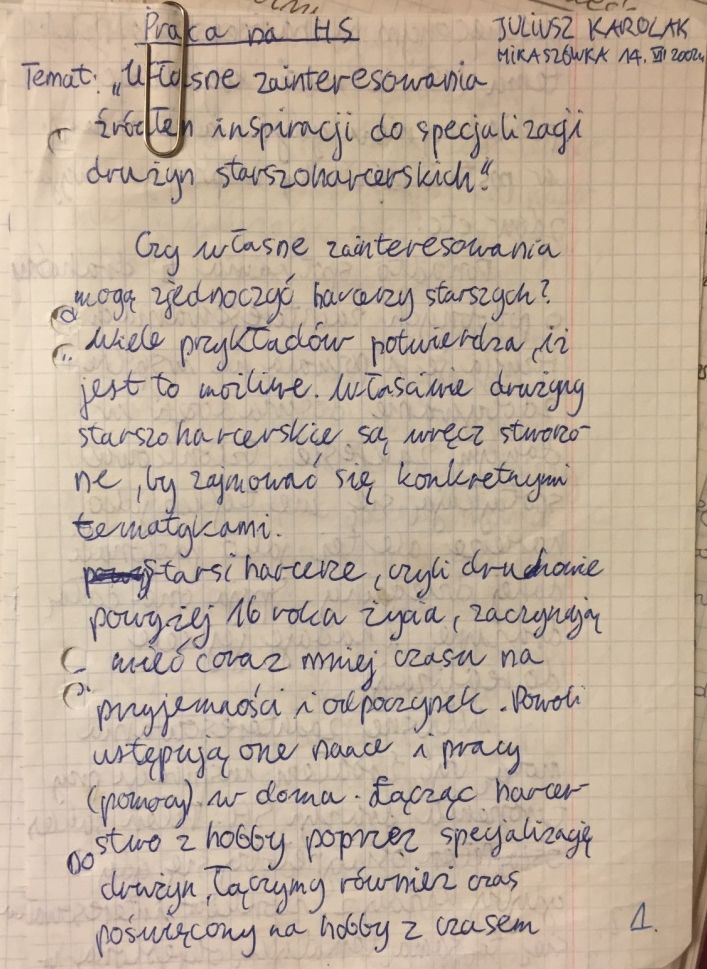 Praca na HS
JULIUSZ KAROLAK
MIKASZÓWKA 14. VII 2002r.
Temat: „Własne zainteresowania
źródłen inspiracji do specjalizacji
drużyn starszoharcerskich."
Czy własne zainteresowania
mogą zjednoczyć harcerzy starszych?
Wiele przykładów potwierdza, iż
jest to możliwe. Właściwie drużyny
starszoharcerskie są wręcz stworzo-
ne, by zajmować się konkretnymi
tematykami.
Starsi harcerze, czyli druhowie
powyżej 16 roka życia, zaczynają
mieć coraz mniej czasu na
przyjemności i odpoczynek. Powoli
ustępują one nauce i pracy
(pomocy) w domu. Łącząc harcer-
stwo z hobby poprzez specjalizację
drużyn, łączymy również czas
poświęcony na hobby z czasem
1.